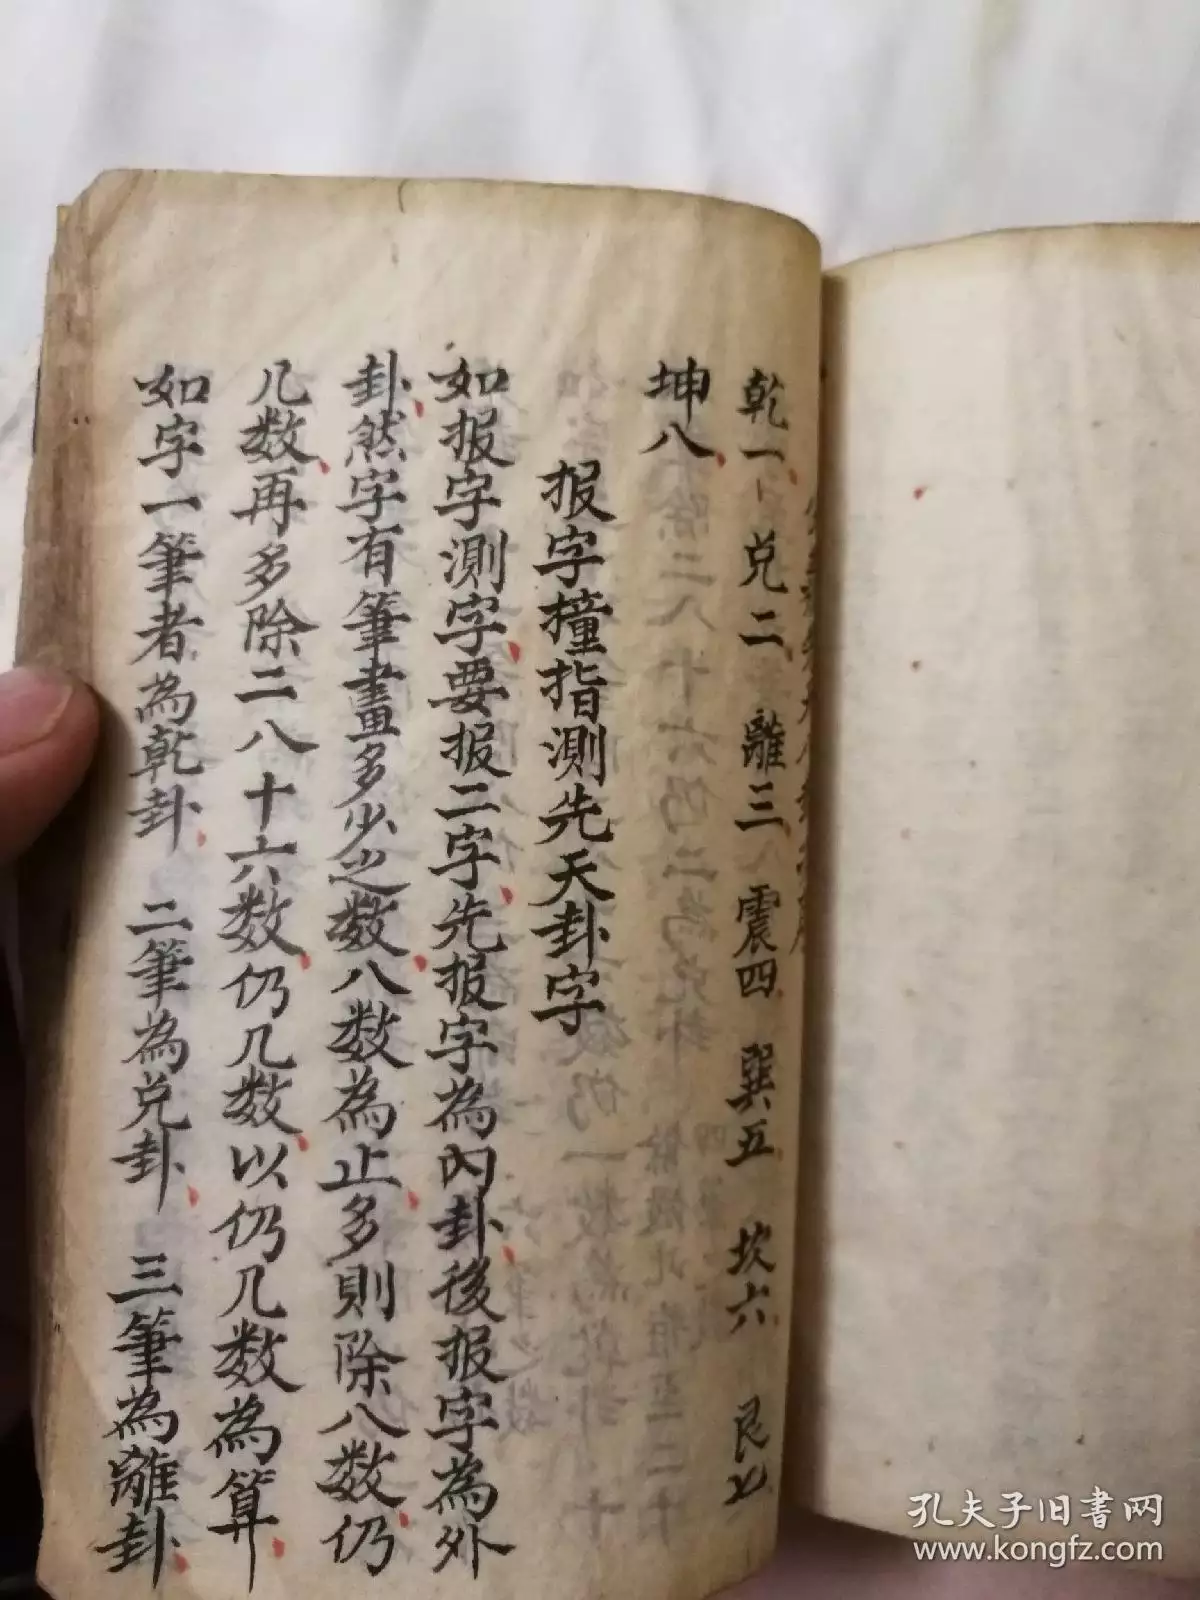 乾一 兑二 離三 震四 巽五 坎六 艮七
坤八
报字撞指測先天卦字
如报字測字要报二字先报字為内卦後报字為外
卦然字有筆畫多少之数八数為止多則除八数仍
几数再多除二八十六数仍几数以仍几数為算
如字一筆者為乾卦 二筆為兑卦 三筆為離卦
孔夫子旧书网
www.kongfz.com